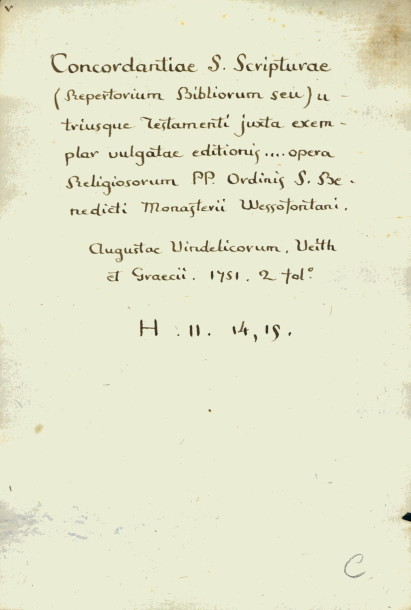 v
Concordantiae S. Scripturae
(Repertorium Bibliorum seu) u
triusque Testamenti juxta exem-
plar vulgatae editionis .... opera
Religiosorum PP. Ordinis S. Be-
nedicti Monasterii Wessofontani.
Augustae Vindelicorum. Veith
et Graecii. 1751. 2 fol.º
H. 11. 14, 15.
C